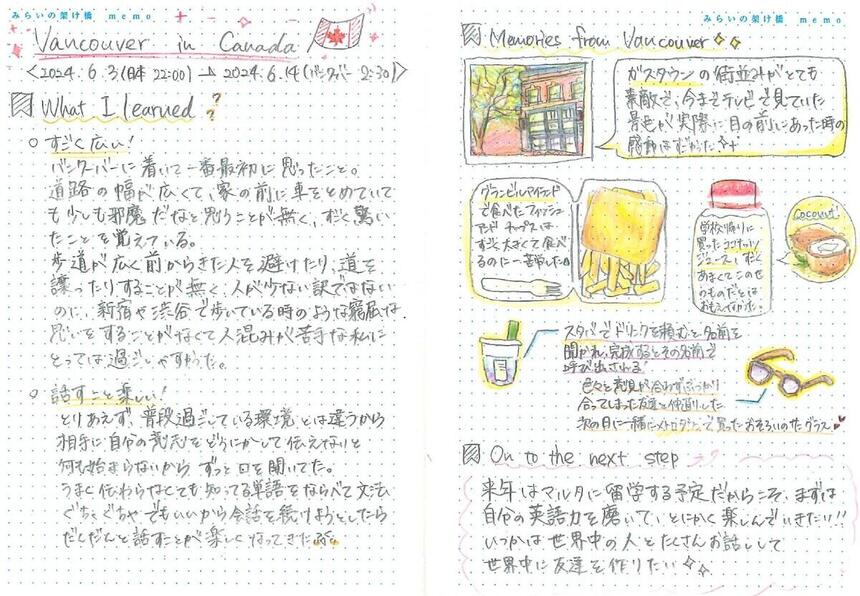 みらいの架け橋 memo
Vancouver in Canada
<2024.6.3(日本 22:00) → 2024.6.14(バンクーバー 2:30)>
What I learned ?
○ すごく広い!
バンクーバーに着いて一番最初に思ったこと。
道路の幅が広くて、家の前に車をとめていて
も少しも邪魔だなと思うことが無く、すごく驚い
たことを覚えている。
歩道が広く前からきた人を避けたり、道を
譲ったりすることが無く、人が少ない訳ではない
のに、新宿や渋谷で歩いている時のような窮屈な
思いをすることがなくて人混みが苦手な私に
とっては過ごしやすかった。
○ 話すこと楽しい!
とりあえず、普段過ごしている環境とは違うから
相手に自分の意志をどうにかして伝えないと
何も始まらないからずっと口を開いてた。
うまく伝わらなくても知ってる単語をならべて文法
ぐちゃぐちゃでもいいから会話を続けようとしたら
だんだんと話すことが楽しくなってきた
みらいの架け橋 memo
Memories from Vancouver
ガスタウンの街並みがとても
素敵で、今までテレビで見ていた
景色が実際に目の前にあった時の
感動はすごかった
グランビルアイランド
で食べたフィッシュ
アンドチップスは
すごく大きくて食べ
るのに一苦労した
学校帰りに
買ったココナッツ
ジュース、すごく
あまくてこのせ
うものだとは
おもえなかった。
Coconut
スタバでドリンクを頼むと名前を
聞かれ、完成するとその名前で
呼び出される
色々と意見が合わずぶつかり
合ってしまった友達と仲直りした
次の日に一緒にメトロタウンで買ったおそろいのサングラス
On to the next step
来年はマルタに留学する予定だからこそ、まずは
自分の英語力を磨いて、とにかく楽しんでいきたい!!
いつかは世界中の人とたくさんお話しして
世界中に友達を作りたい